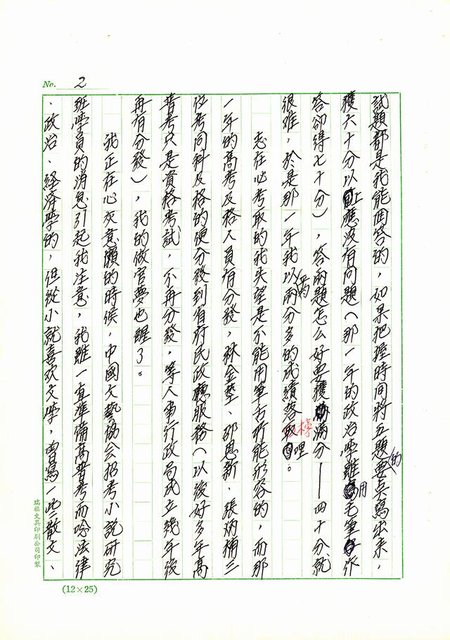 No. 2
試題都是我能回答的,如果把握時間將五題要點寫出來,
獲六十分以上應沒有問題(那一年的政治學雖用毛筆作
答卻得七十分),答兩題怎么好並獲滿分——四十分,就
很難,於是那一年我以兩分多的成績落榜哩。
志在必考取的我失望是不能用筆古所能形容的,而那
一年的高考及格人員有分發,林金莖、邵恩新、張炳楠三
位考同科及格的便分發到省府民政廳服務(以後好多年高
普考只是資格考試,不再分發,等人事行政局成立幾年後
再有分發),我的做官夢也醒了。
我正在心灰意懶的時候,中國文藝協會招考小說研究
班學員的消息引起我注意,我雖一直準備高普考而唸法律
、政治、經濟學的,但從小就喜歡文學,曾寫一些散文、
瑞鉅文具印刷公司印製
(12×25)